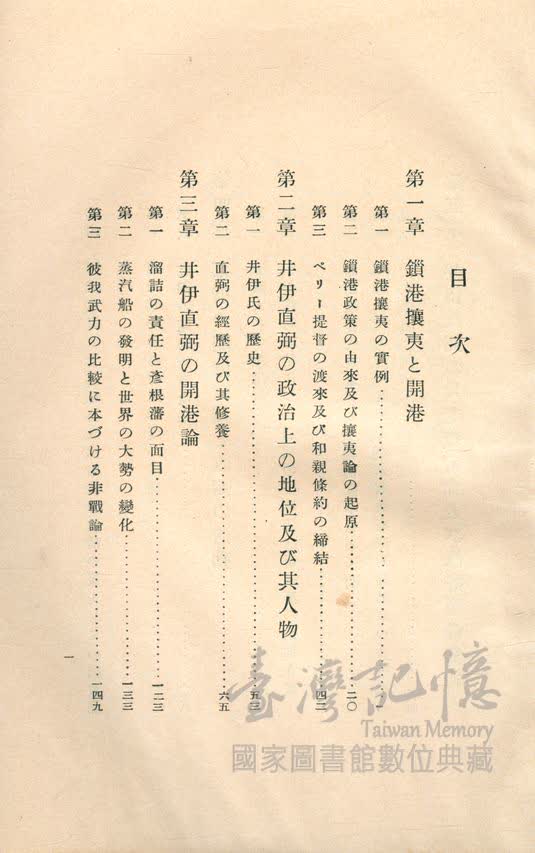 目次
第一章 鎖港攘夷と開港
第一 鎖港攘夷の實例
第二 鎖港政策の由來及び攘夷論の起原 二〇
第三 ペリー提督の渡來及び和親條約の締結 四二
第二章 井伊直弼の政治上の地位及び其人物
第一 井伊氏の歷史 五三
第二 直弼の經歷及び其修養 六五
第三章 井伊直弼の開港論
第一 溜詰の責任と彥根藩の面目 一二三
第二 蒸汽船の發明と世界の大勢の變化 一三三
第三 彼我武力の比較に本づける非戰論 一四九
一
臺灣記憶
Taiwan Memory
國家圖書館數位典藏